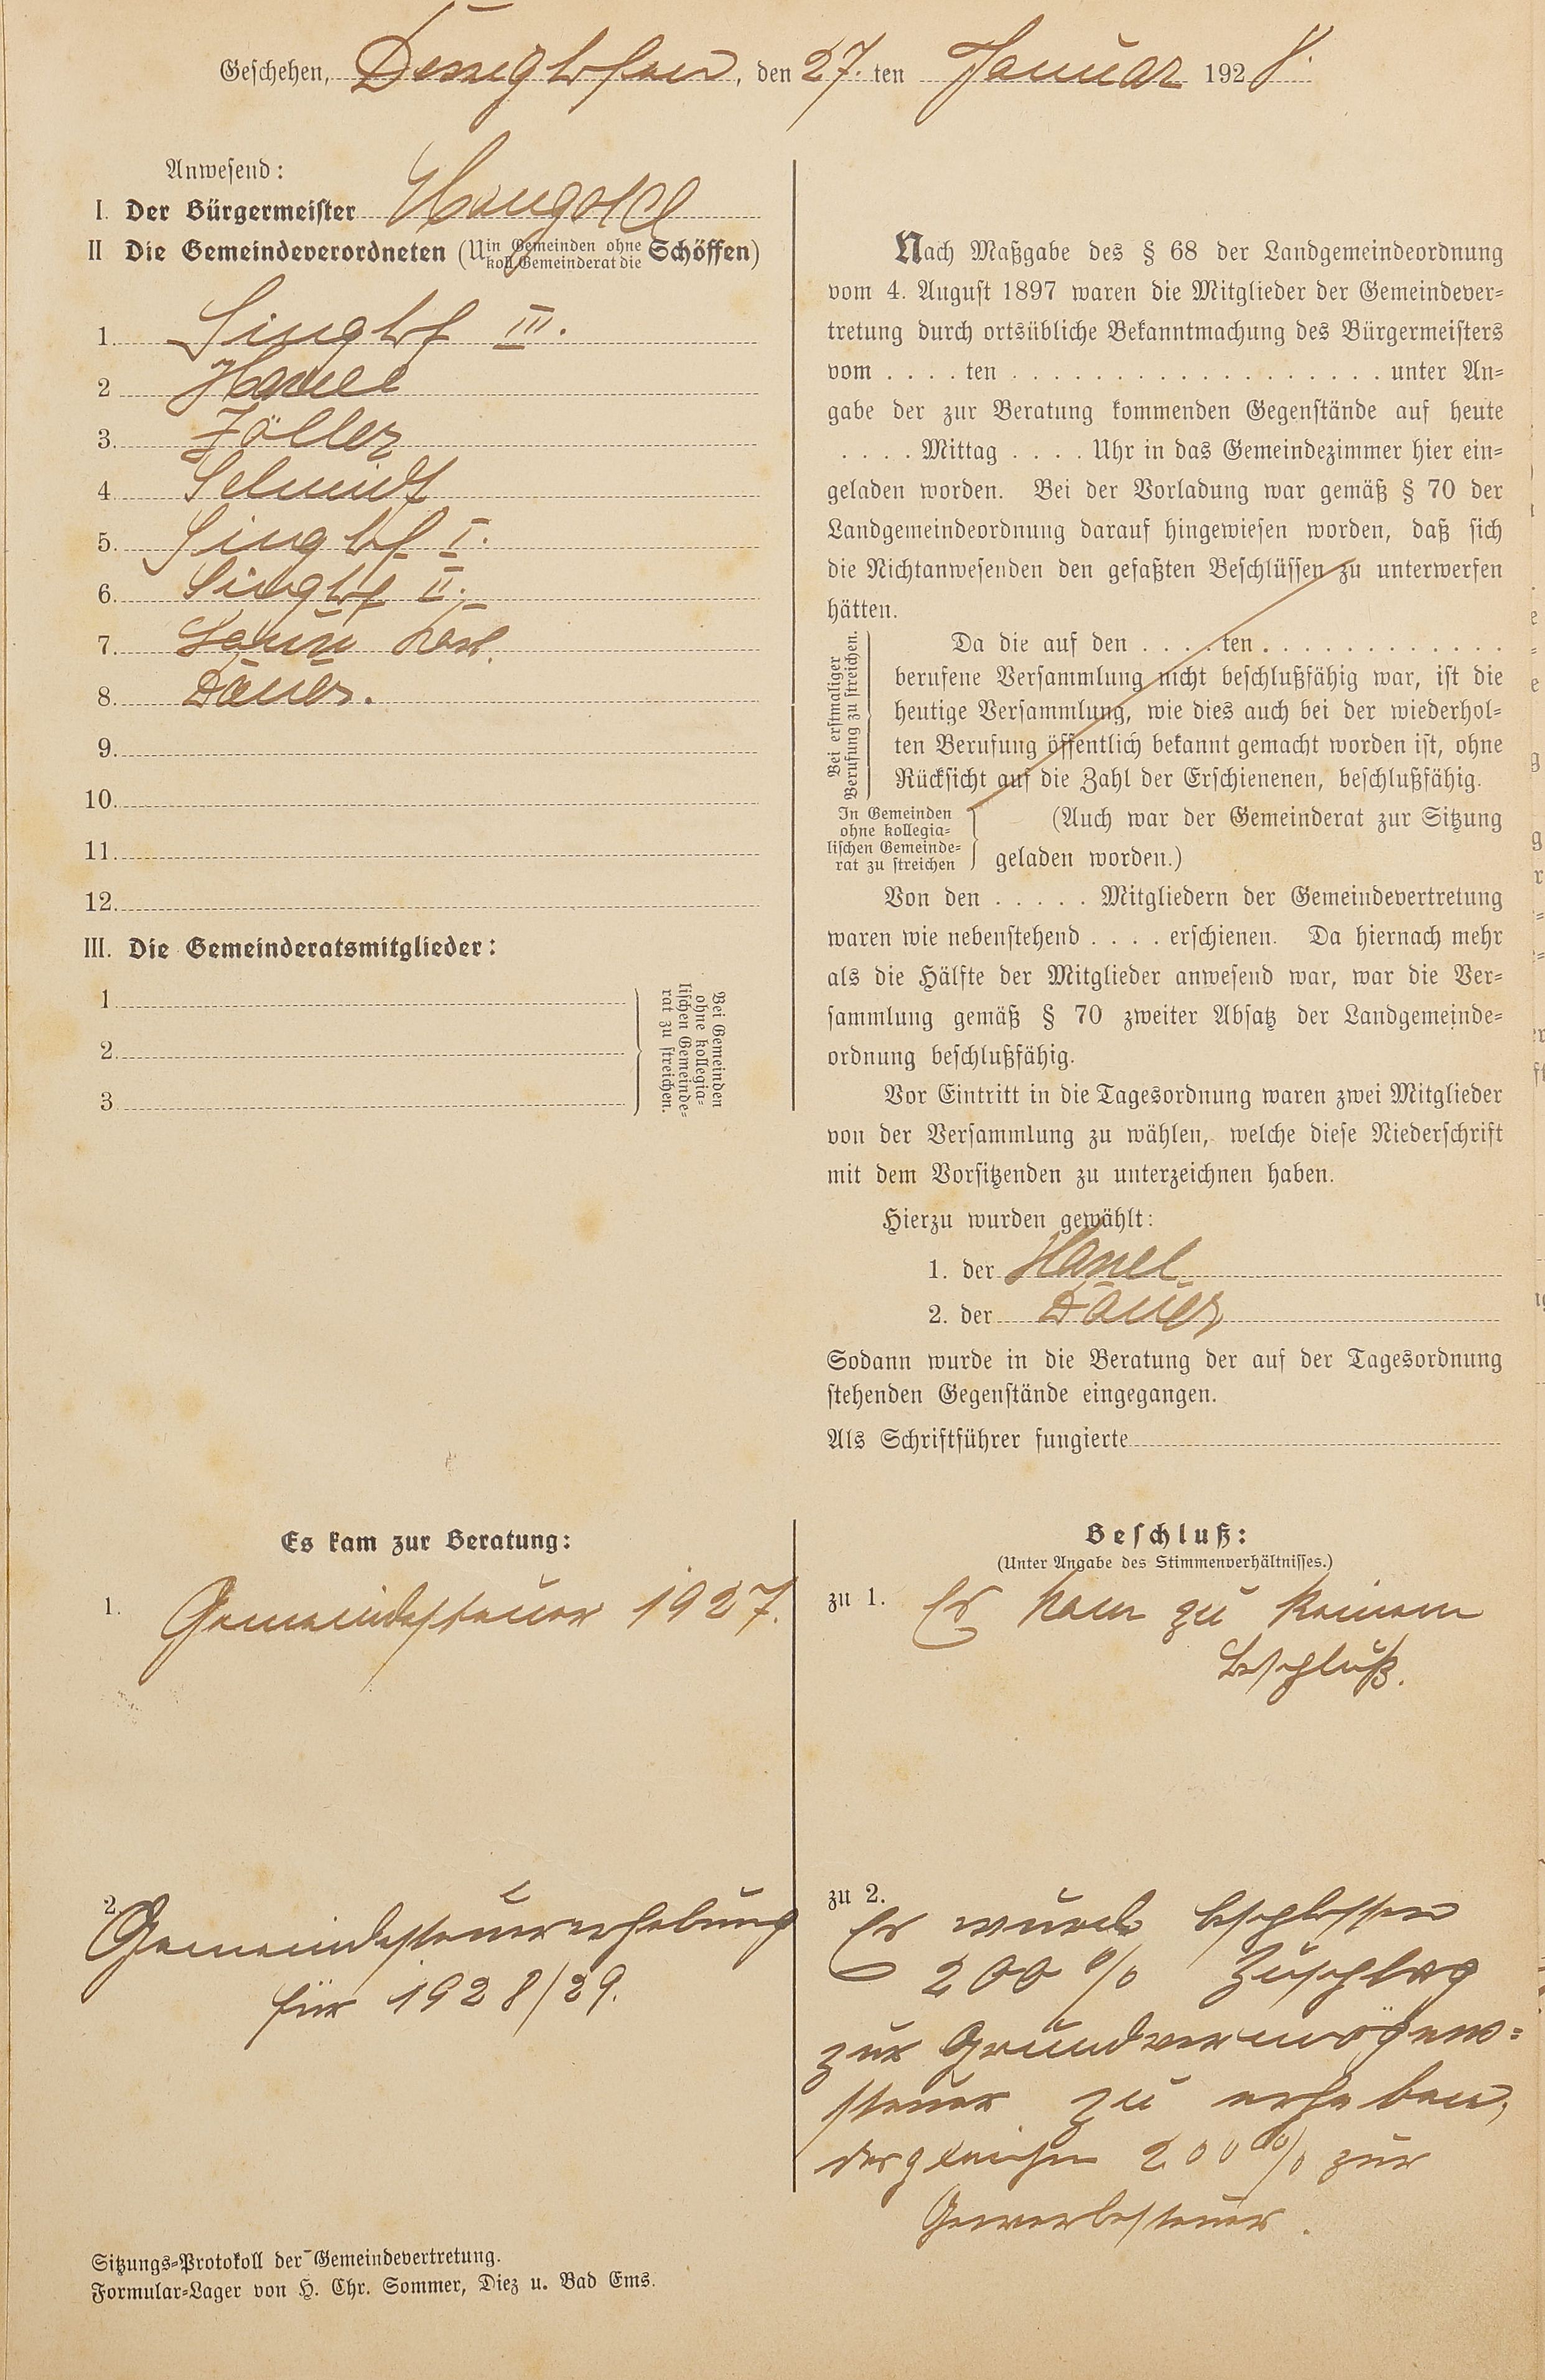 Geschehen, Dessighofen, den 27. ten Januar 1928.
Anwesend:
I. Der Bürgermeister
II Die Gemeindeverordneten (U in Gemeinden ohne koll. Gemeinderat die Schöffen)
1. Singhof III.
2 Hanel
3. Zöller
4. Schmidt
5. Singhof I.
6. Singhof II.
7. Karl.
8. Dauer.
9.
10.
11.
12.
III. Die Gemeinderatsmitglieder:
1
2.
3
Bei Gemeinden
ohne kollegia=
lischen Gemeinde=
rat zu streichen.
Nach Maßgabe des § 68 der Landgemeindeordnung
vom 4. August 1897 waren die Mitglieder der Gemeindever=
tretung durch ortsübliche Bekanntmachung des Bürgermeisters
vom . . . . ten . . . . . . . . . . . . . . . . . . unter An=
gabe der zur Beratung kommenden Gegenstände auf heute
. . . . Mittag . . . . Uhr in das Gemeindezimmer hier ein=
geladen worden. Bei der Vorladung war gemäß § 70 der
Landgemeindeordnung darauf hingewiesen worden, daß sich
die Nichtanwesenden den gefaßten Beschlüssen zu unterwerfen
hätten.
Bei erstmaliger
Berufung zu streichen.
Da die auf den . . . . ten . . . . . . . . . . . .
berufene Versammlung nicht beschlußfähig war, ist die
heutige Versammlung, wie dies auch bei der wiederhol=
ten Berufung öffentlich bekannt gemacht worden ist, ohne
Rücksicht auf die Zahl der Erschienenen, beschlußfähig.
In Gemeinden
ohne kollegia=
lischen Gemeinde=
rat zu streichen
(Auch war der Gemeinderat zur Sitzung
geladen worden.)
Von den . . . . . Mitgliedern der Gemeindevertretung
waren wie nebenstehend . . . . erschienen. Da hiernach mehr
als die Hälfte der Mitglieder anwesend war, war die Ver=
sammlung gemäß § 70 zweiter Absatz der Landgemeinde=
ordnung beschlußfähig.
Vor Eintritt in die Tagesordnung waren zwei Mitglieder
von der Versammlung zu wählen, welche diese Niederschrift
mit dem Vorsitzenden zu unterzeichnen haben.
Hierzu wurden gewählt:
1. der Hanel
2. der Dauer
Sodann wurde in die Beratung der auf der Tagesordnung
stehenden Gegenstände eingegangen.
Als Schriftführer fungierte
Es kam zur Beratung:
1. Gemeindesteuer 1927.
2. Gemeindesteuererhebung
für 1928/29.
Beschluß:
(Unter Angabe des Stimmenverhältnisses.)
zu 1. Es kam zu keinem
Beschluß.
zu 2.
Es wurde beschlossen
200 % Zuschlag
zur Grundvermögens=
steuer zu erheben,
desgleichen 200 % zur
Gewerbesteuer.
Sitzungs=Protokoll der Gemeindevertretung.
Formular=Lager von H. Chr. Sommer, Diez u. Bad Ems.